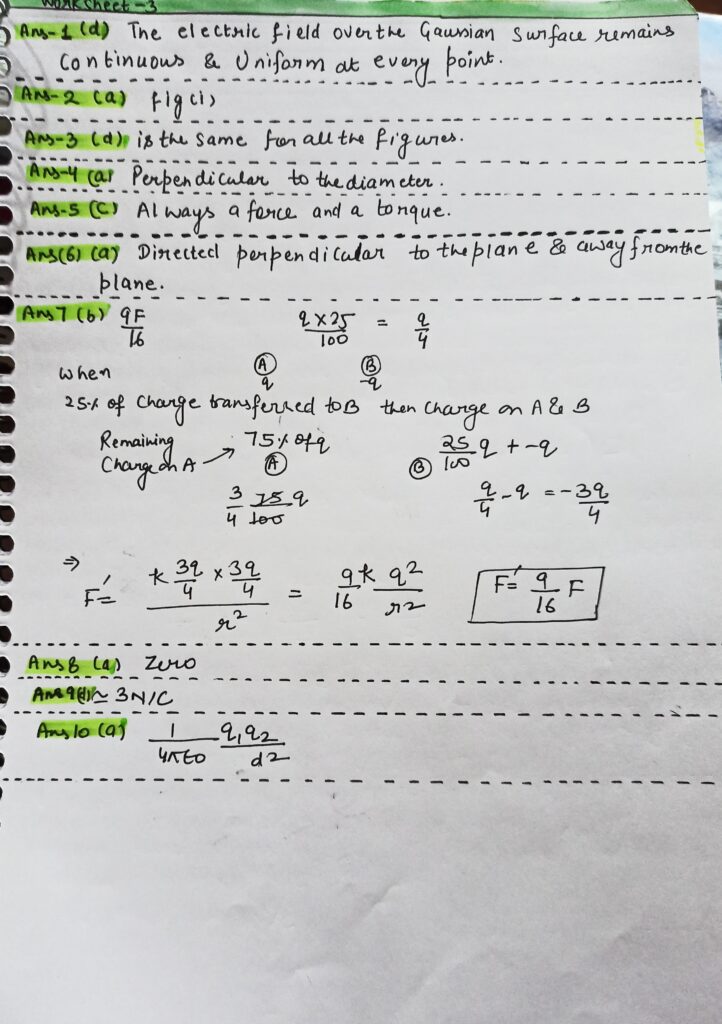 Worksheet-3
Ans-1 (d) The electric field over the Gaussian Surface remains
Continuous & Uniform at every point.
Ans-2 (a) fig (i)
Ans-3 (d) is the same for all the figures.
Ans-4 (a) Perpendicular to the diameter.
Ans-5 (C) Always a force and a torque.
Ans(6) (a) Directed perpendicular to the plane & away from the
plane.
Ans 7 (b) 9F/16 q×25/100 = q/4
when Ⓐ q Ⓑ -q
25% of Charge transferred to B then Charge on A & B
Remaining Charge on A → 75% of q Ⓐ Ⓑ 25/100 q + -q
3/4 75/100 q q/4 - q = -3q/4
⇒ F' = k 3q/4 × 3q/4 / r² = 9/16 k q²/r² F' = 9/16 F
Ans 8 (a) Zero
Ans 9(d) ≃ 3N/C
Ans 10 (a) 1/4πε0 q1q2/d2